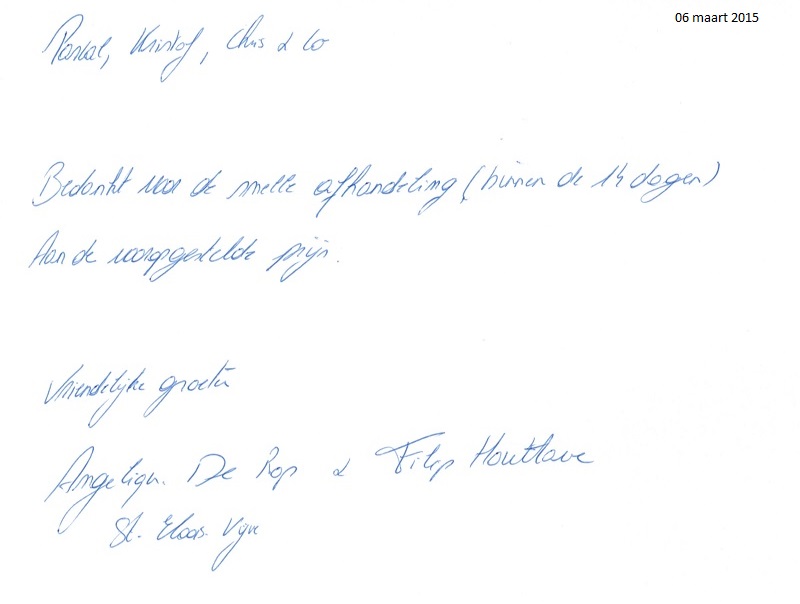 06 maart 2015
Pascal, Kristof, Chris & Co
Bedankt voor de snelle afhandeling (binnen de 14 dagen)
Aan de vooropgestelde prijs.
Vriendelijke groeten
Angeliqu. De Rop & Filip Houttave
St. Eloois. Vijve